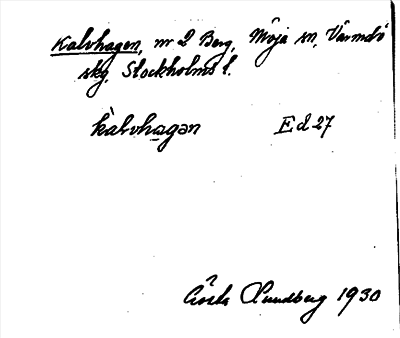 Kalvhagen, nr 2 Berg, Möja sn, Värmdö
skg. Stockholms l.
kàlvhagən Ed 27
Gösta Lundberg 1930